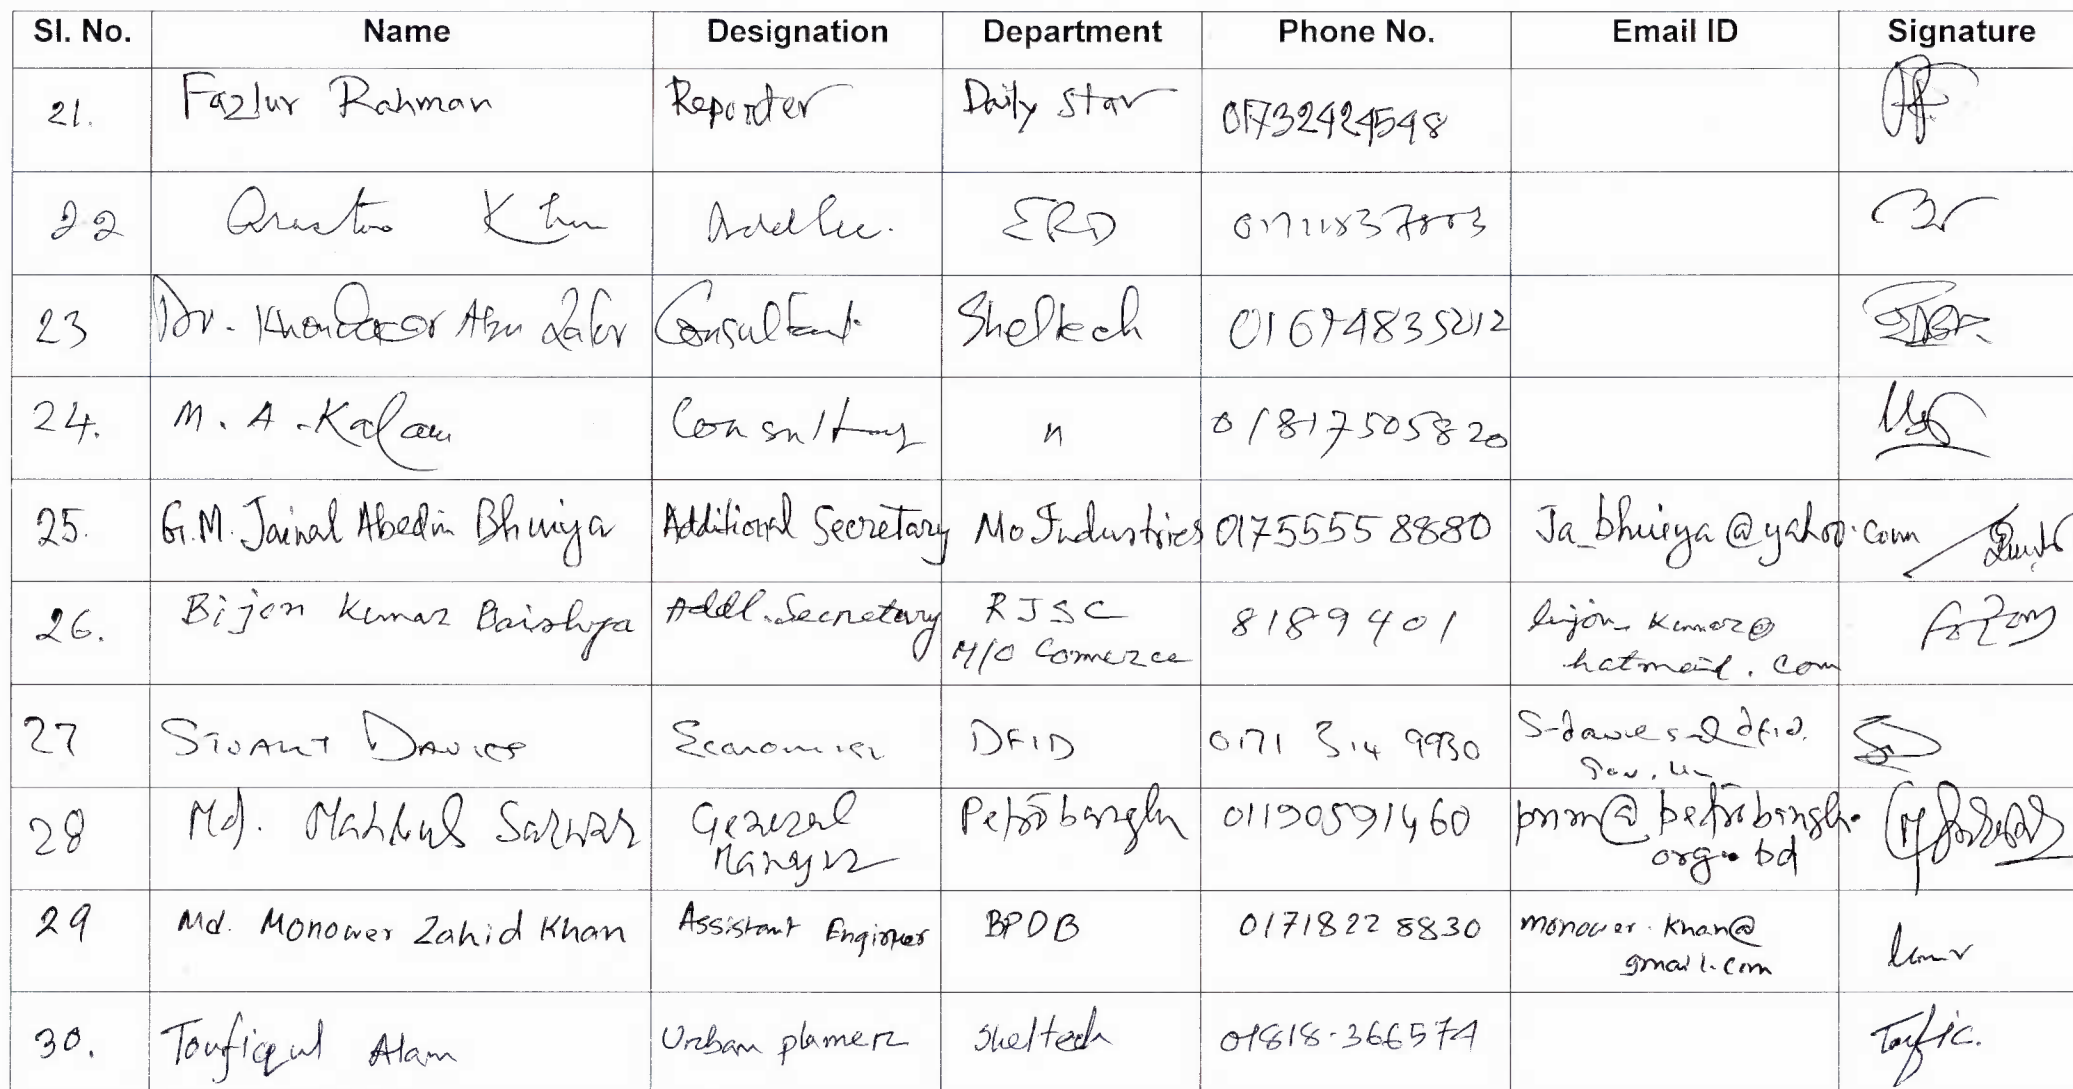 Sl. No. Name Designation Department Phone No. Email ID Signature
21. Fazlur Rahman Reporter Daily Star 01732424548
22 ERD
23 Dr. Khondaker Abu Consultant Sheltech 01674835212
24. M. A. Kalam Consultant 〃 01817505820
25. G.M. Jainal Abedin Bhuiya Additional Secretary Mo Industries 01755558880 Ja_bhuiya@yahoo.com
26. Bijon Kumar Baishya Addl. Secretary RJSC 8189401 bijon_kumar@
M/O Comerce hotmail.com
27 Stuart Davies Economist DFID 0171 314 9930 S-davies@dfid.
gov.uk
28 Md. Mahbub Sarwar General Petrobangla 01190591460 pmm@petrobangla.
Manager org.bd
29 Md. Monower Zahid Khan Assistant Engineer BPDB 01718228830 monower.khan@
gmail.com
30. Toufiqul Alam Urban planner Sheltech 01818-366574 Toufic.